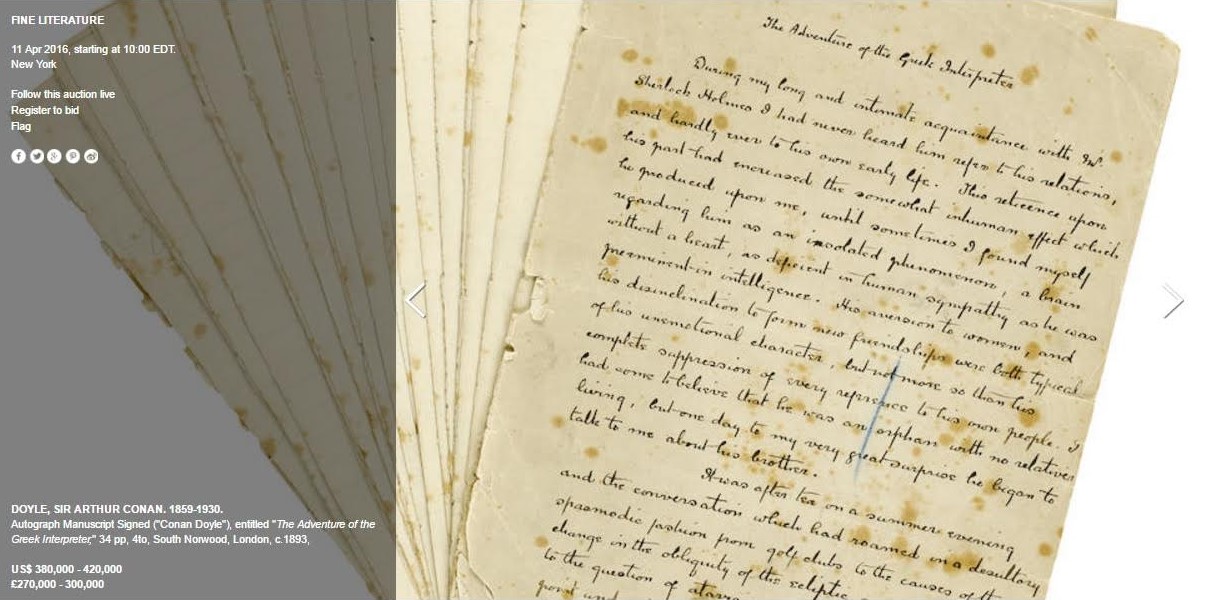 FINE LITERATURE
11 Apr 2016, starting at 10:00 EDT.
New York
Follow this auction live
Register to bid
Flag
DOYLE, SIR ARTHUR CONAN. 1859-1930.
Autograph Manuscript Signed ("Conan Doyle"), entitled "The Adventure of the
Greek Interpreter," 34 pp, 4to, South Norwood, London, c.1893,
US$ 380,000 - 420,000
£270,000 - 300,000
The Adventure of the Greek Interpreter
During my long and intimate acquaintance with Mr
Sherlock Holmes I had never heard him refer to his relations,
and hardly ever to his own early life. This reticence upon
his part had increased the somewhat inhuman effect which
he produced upon me, until sometimes I found myself
regarding him as an isolated phenomenon, a brain
without a heart, as deficient in human sympathy as he was
preeminent in intelligence. His aversion to women, and
his disinclination to form new friendships were both typical
of his unemotional character, but not more so than his
complete suppression of every reference to his own people. I
had come to believe that he was an orphan with no relatives
living, but one day to my very great surprise he began to
talk to me about his brother.
It was after tea on a summer evening
and the conversation which had roamed in a desultory
spasmodic fashion from golf clubs to the causes of the
change in the obliquity of the ecliptic
to the question of